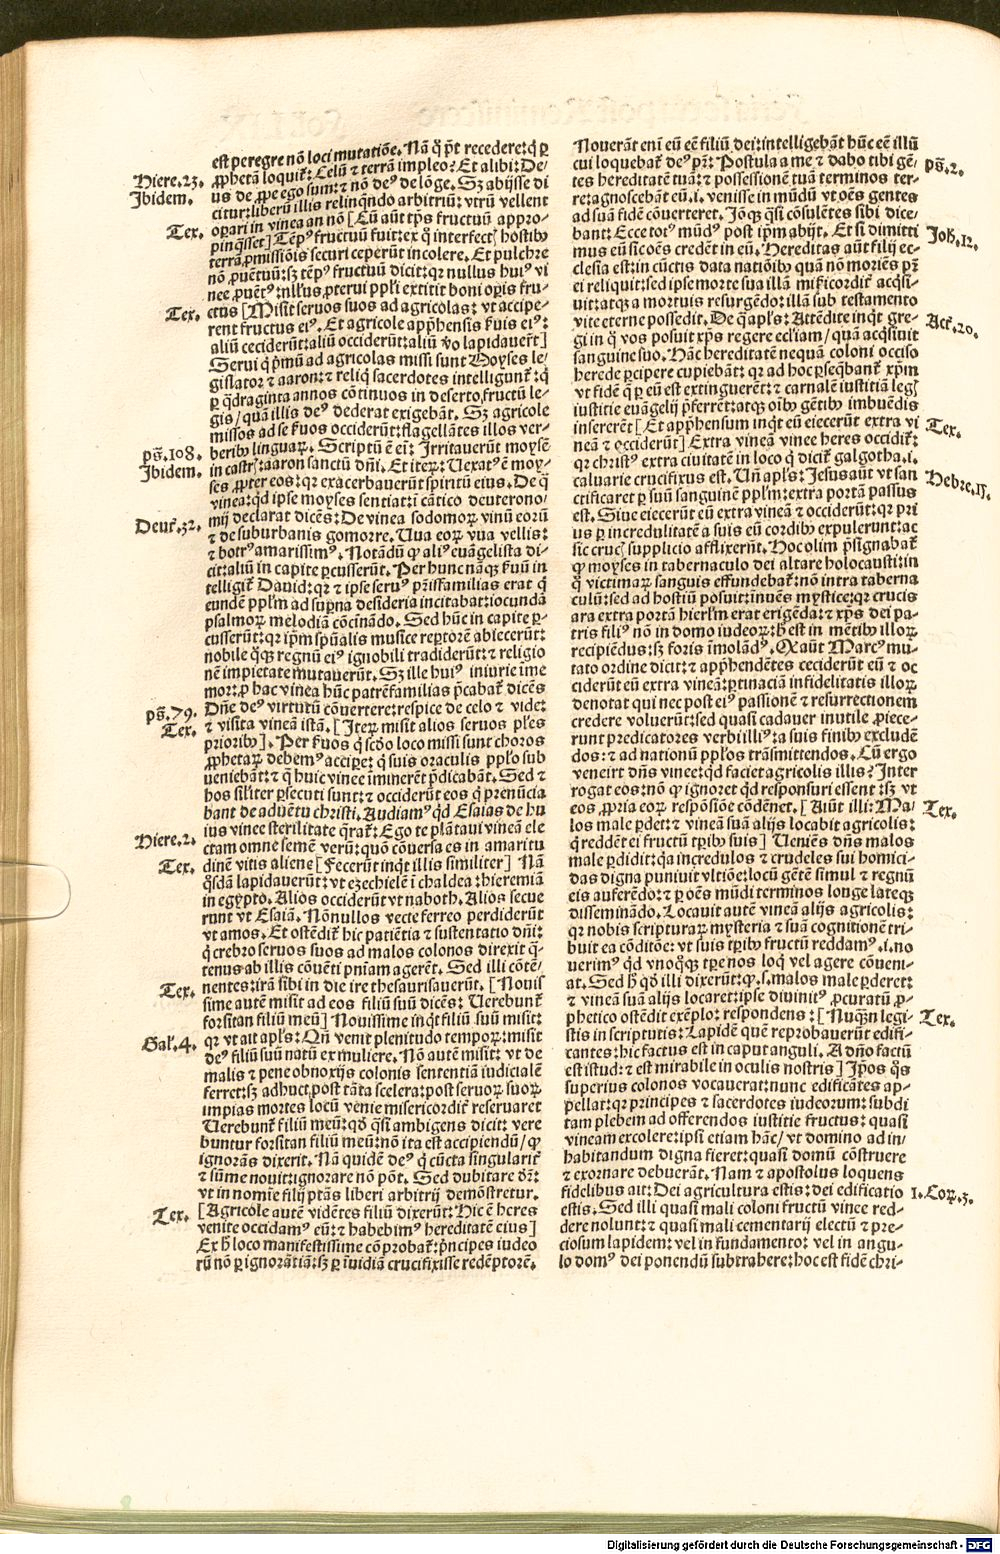 est peregre nō loci mutatiōe. Nā q̄ p̄t recedere: q̄ ꝑ
ꝓphetā loquit᷑: Celū ⁊ terrā impleo? Et alibi: De/
us de ꝓpe ego sum: ⁊ nō deꝰ de lōge. Sꝫ abijsse di
citur: liberū illis relinqndo arbitriū: vtrū vellent
oꝑari in vinea an nō [Cū aūt tp̄s fructuū appro-
pinq̄sset] Tēpꝰ fructuū fuit: ex q̄ interfectꝭ hostibꝰ
terrā ꝓmissiōis securi ceperūt incolere. Et pulchre
nō ꝓuētuū: sꝫ tēpꝰ fructuū dicit: qꝛ nullus huiꝰ vi
nee ꝓuētꝰ: nllꝰus ꝓterui pplī extitit boni oꝑis fru-
ctus [Misit seruos suos ad agricolas: vt accipe-
rent fructus eiꝰ. Et agricole app̄hensis s̄uis eiꝰ:
aliū ceciderūt: aliū occiderūt: aliū v̄o lapidauer̄t]
Serui q̄ p̄mū ad agricolas missi sunt Moyses le/
gislator ⁊ aaron: ⁊ reliq̄ sacerdotes intelligunt᷑: q̄
ꝑ q̄draginta annos cōtinuos in deserto, fructū le-
gis/ quā illis deꝰ dederat exigebāt. Sꝫ agricole
missos ad se s̄uos occiderūt: flagellātes illos ver-
beribꝰ linguaꝝ. Scriptū ē ei: Irritauerūt moysē
in castrꝭ: aaron sanctū dn̄i. Et iteꝝ: Uexatꝰ ē moy-
ses ꝓpter eos: qꝛ exacerbauerūt spiritū eius. De q̄
vinea: qd ipse moyses sentiat: ī cātico deuterono/
mij declarat dicēs: De vinea sodomoꝝ vinū eorū
⁊ de suburbanis gomorre. Uua eoꝝ vua vellis:
⁊ botrꝰ amarissimꝰ. Notādū ꝙ aliꝰ euāgelista di-
cit: aliū in capite ꝑcusserūt. Per hunc nāqꝫ s̄uū in
telligit᷑ Dauid: qꝛ ⁊ ipse seruꝰ pr̄isfamilias erat q̄
eundē pplm̄ ad suꝑna desideria incitabat: iocundā
psalmoꝝ melodiā cōcinādo. Sed hūc in capite ꝑ-
cusserūt: qꝛ ip̄m sp̄ualis musice reꝑtorē abiecerūt:
nobile q̄qꝫ regnū eiꝰ ignobili tradiderūt: ⁊ religio
nē impietate mutauerūt. Sꝫ ille huiꝰ iniurie ime
mor: ꝓ hac vinea hūc patrēfamilias p̄cabat᷑ dicēs
Dn̄e deꝰ virtutū cōuertere: respice de celo ⁊ vide:
⁊ visita vineā istā. [Iteꝝ misit alios seruos pl̄es
prioribꝰ]. Per s̄uos q̄ scd̄o loco missi sunt choros
ꝓphetaꝝ debemꝰ acciꝑe: q̄ suis oraculis pplo sub
ueniebāt: ⁊ q̄ huic vinee īminerēt p̄dicabāt. Sed ⁊
hos sil̄iter ꝑsecuti sunt: ⁊ occiderūt eos q̄ prenūcia
bant de aduētu christi. Audiamꝰ qd Esaias de hu
ius vinee sterilitate q̄rat᷑: Ego te plātaui vineā ele
ctam omne semē verū: quō cōuersa es in amaritu
dinē vitis aliene [Fecerūt inqt illis similiter] Nā
q̄sdā lapidauerūt: vt ezechielē ī chaldea: hieremiā
in egypto. Alios occiderūt vt naboth. Alios secue
runt vt Esaiā. Nōnullos vecte ferreo perdiderūt
vt amos. Et ostēdit᷑ hic patiētia ⁊ sustentatio dn̄i:
q̄ crebro seruos suos ad malos colonos direxit q̄-
tenus ab illis cōuēti pn̄iam agerēt. Sed illi cōtē/
nentes: irā sibi in die ire thesaurisauerūt. [Nouis
sime autē misit ad eos filiū suū dicēs: Uerebunt᷑
forsitan filiū meū] Nouissime inqt filiū suū misit:
qꝛ vt ait apl̄s: Qn̄ venit plenitudo tempoꝝ: misit
deꝰ filiū suū natū ex muliere. Nō autē misit: vt de
malis ⁊ pene obnoxijs colonis sententiā iudicialē
ferret: sꝫ adhuc, post tāta scelera: post seruoꝝ suoꝝ
impias mortes locū venie misericordit᷑ reseruaret
Uerebunt᷑ filiū meū: qd̄ q̄si ambigens dicit: vere
buntur forsitan filiū meū: nō ita est accipiendū/ ꝙ
ignorās dixerit. Nā quidē deꝰ q̄ cūcta singularit᷑
⁊ sūme nouit: ignorare nō pōt. Sed dubitare dr̄:
vt in nomīe filij ptās liberi arbitrij demōstretur.
[Agricole autē vidētes filiū dixerūt: Hic ē heres
venite occidamꝰ eū: ⁊ habebimꝰ hereditatē eius]
Ex h̄ loco manifestissime cōprobat᷑: p̄ncipes iudeo
rū nō ꝑ ignorātiā: sꝫ ꝑ īuidiā crucifixisse redēptorē.
Hiere.23.
Ibidem.
Tex.
Tex.
ps̄.108.
Ibidem.
Deut᷑.32.
ps̄.79.
Tex.
Hiere.2.
Tex.
Tex.
Gal᷑.4.
Tex.
Nouerāt enī eū eē filiū dei: intelligebāt hūc eē illū
cui loquebat᷑ deꝰ pr̄: Postula a me ⁊ dabo tibi gē/
tes hereditatē tuā: ⁊ possessionē tuā terminos ter-
re: agnoscebāt eū .i. venisse in mūdū vt oēs gentes
ad suā fidē cōuerteret. Jōqꝫ q̄si cōsulētes sibi dice/
bant: Ecce totꝰ mūdꝰ post ip̄m abijt. Et si dimitti
mus eū sic oēs credēt in eū. Hereditas aūt filij ec-
clesia est: in cūctis data natiōibꝰ quā nō moriēs pr̄
ei reliquit: sed ipse morte sua illā mīsericordit᷑ acq̄si-
uit: atqꝫ a mortuis resurgēdo: illā sub testamento
vite eterne possedit. De q̄ apl̄s: Attēdite inqt gre-
gi in q̄ vos posuit xp̄s regere eccl̄iam/ quā acq̄siuit
sanguine suo. Hāc hereditatē nequā coloni occiso
herede ꝑcipere cupiebāt: qꝛ ad hoc ꝑseq̄bant᷑ xp̄m
vt fidē q̄ ꝑ eū est extinguerēt: ⁊ carnalē iustitiā legꝭ
iustitie euāgelij p̄ferrēt: atqꝫ oībꝰ gētibꝰ imbuēdis
insererēt [Et app̄hensum inqt eū eiecerūt extra vi
neā ⁊ occiderūt] Extra vineā vinee heres occidit᷑:
qꝛ christꝰ extra ciuitatē in loco q̄ dicit᷑ galgotha .i.
caluarie crucifixus est. Un̄ apl̄s: Jesus aūt vt san
ctificaret ꝑ suū sanguinē pplm̄: extra portā passus
est. Siue eiecerūt eū extra vineā ⁊ occiderūt: qꝛ pri
us ꝑ incredulitatē a suis eū cordibꝰ expulerunt: ac
sic crucꝭ supplicio afflixerūt. Hoc olim p̄signabat᷑
ꝙ moyses in tabernaculo dei altare holocausti: in
q̄ victimaꝝ sanguis effundebat᷑: nō intra taberna
culū: sed ad hostiū posuit: īnuēs mystice: qꝛ crucis
ara extra portā hierl̄m erat erigēda: ⁊ xp̄s dei pa-
tris filiꝰ nō in domo iudeoꝝ: h̄ est in mētibꝰ illoꝝ
recipiēdus: sꝫ foris īmolādꝰ. Qꝛ aūt Marcꝰ mu-
tato ordine dicit: ⁊ app̄hendētes ceciderūt eū ⁊ oc
ciderūt eū extra vineā: ꝑtinaciā infidelitatis illoꝝ
denotat qui nec post eiꝰ passionē ⁊ resurrectionem
credere voluerūt: sed quasi cadauer inutile ꝓiece-
runt predicatores verbi illiꝰ: a suis finibꝰ excludē
dos: ⁊ ad nationū pplos trāsmittendos. Cū ergo
veneirt dn̄s vinee: qd faciet agricolis illis? Inter
rogat eos: nō ꝙ ignoret qd responsuri essent: sꝫ vt
eos ꝓpria eoꝝ respōsiōe cōdēnet. [Aiūt illi: Ma/
los male ꝑdet: ⁊ vineā suā alijs locabit agricolis:
q̄ reddēt ei fructū tꝑibꝰ suis] Ueniēs dn̄s malos
male ꝑdidit: q̄a incredulos ⁊ crudeles sui homici-
das digna puniuit vltiōe: locū gētē simul ⁊ regnū
eis auferēdo: ⁊ ꝑ oēs mūdi terminos longe lateqꝫ
disseminādo. Locauit autē vineā alijs agricolis:
qꝛ nobis scripturaꝝ mysteria ⁊ suā cognitionē tri-
buit ea cōditiōe: vt suis tꝑibꝰ fructū reddamꝰ .i. no
uerimꝰ qd vnoq̄qꝫ tꝑe nos loq̄ vel agere cōueni-
at. Sed h̄ qd̄ illi dixerūt: ꝙ .s. malos male ꝑderet:
⁊ vineā suā alijs locaret: ipse diuinitꝰ ꝓcuratū ꝓ-
phetico ostēdit exēplo: respondens: [Nuq̄n legi-
stis in scripturis: Lapidē quē reprobauerūt edifi-
cantes: hic factus est in caput anguli. A dn̄o factū
est istud: ⁊ est mirabile in oculis nostris] Ip̄os q̄s
superius colonos vocauerat: nunc edificātes ap-
pellat: qꝛ principes ⁊ sacerdotes iudeorum: subdi
tam plebem ad offerendos iustitie fructus: quasi
vineam excolere: ipsi etiam hāc/ vt domino ad in/
habitandum digna fieret: quasi domū cōstruere
⁊ exornare debuerāt. Nam ⁊ apostolus loquens
fidelibus ait: Dei agricultura estis: dei edificatio
estis. Sed illi quasi mali coloni fructū vinee red-
dere nolunt: ⁊ quasi mali cementarij electū ⁊ pre-
ciosum lapidem: vel in fundamento: vel in angu-
lo domꝰ dei ponendū subtrahere: hoc est fidē chri-
ps̄.2.
Joh̄.12.
Act᷑.20.
Tex.
Hebre.13.
Tex.
Tex.
1.Coꝝ.3.
Digitalisierung gefördert durch die Deutsche Forschungsgemeinschaft - DFG